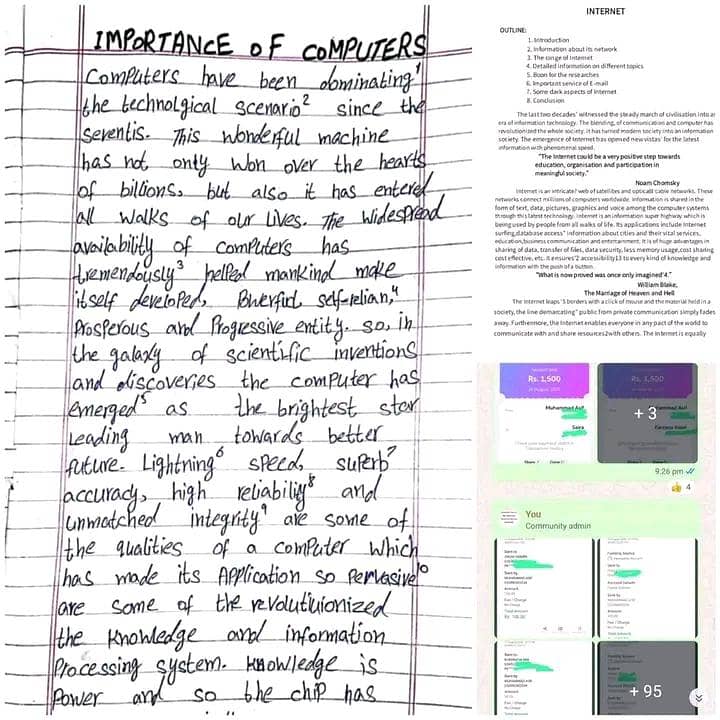 IMPORTANCE OF COMPUTERS
Computers have been dominating1
the technolgical scenario2 since the
seventis. This wonderful machine
has not only won over the hearts
of billions, but also it has entered
all walks of our lives. The widespread
availability of computers has
tremendously3 helped mankind make
itself developed, Powerful, self-relian,4
Prosperous and Progressive entity. so, in
the galaxy of scientific inventions
and discoveries the computer has
emerged5 as the brightest star
Leading man towards better
future. Lightning6 speed, superb7
accuracy, high reliability8 and
unmatched integrity9 are some of
the qualities of a computer which
has made its Application so Pervasive10
are some of the revolutiuionized
the knowledge and information
Processing system. Knowledge is
Power and so the chip has
INTERNET
OUTLINE:
1. Introduction
2. Information about its network
3. The range of Internet
4. Detailed information on different topics
5. Boon for the researches
6. Important service of E-mail
7. Some dark aspects of Internet
8. Conclusion
The last two decades' witnessed the steady march of civilisation into an
era of information technology. The blending, of communication and computer has
revolutionized the whole society. It has turned modern society into an information
society. The emergence of Internet has opened new vistas' for the latest
information with phenomenal speed.
"The Internet could be a very positive step towards
education, organisation and participation in
meaningful society."
Noam Chomsky
Internet is an intricate? web of satellites and optical8 cable networks. These
networks connect millions of computers worldwide. Information is shared in the
form of text, data, pictures, graphics and voice among the computer systems
through this latest technology. Internet is an information super highway which is
being used by people from all walks of life. Its applications include Internet
surfing, database access" information about cities and their vital services,
education, business communication and entertainment. It is of huge advantages in
sharing of data, transfer of files, data security, less memory usage, cost sharing,
cost effective, etc. It ensures'2 accessibility13 to every kind of knowledge and
information with the push of a button.
"What is now proved was once only imagined'4."
William Blake,
The Marriage of Heaven and Hell
The Internet leaps'5 borders with a click of mouse and the material held in a
society, the line demarcating" public from private communication simply fades
away. Furthermore, the Internet enables everyone in any part of the world to
communicate with and share resources2with others. The Internet is equally
Rs. 1,500
Rs. 1,500
Muhammad Asif
+ 3
Saira
9:26 pm
4
You
Community admin
+ 95